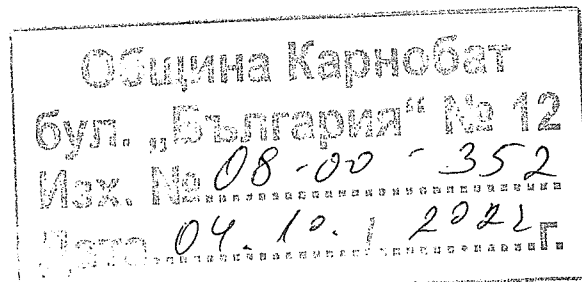 Община Карнобат
бул. „България“ № 12
Изх. № 08-00-352
Дата 04.10. / 2022 г.